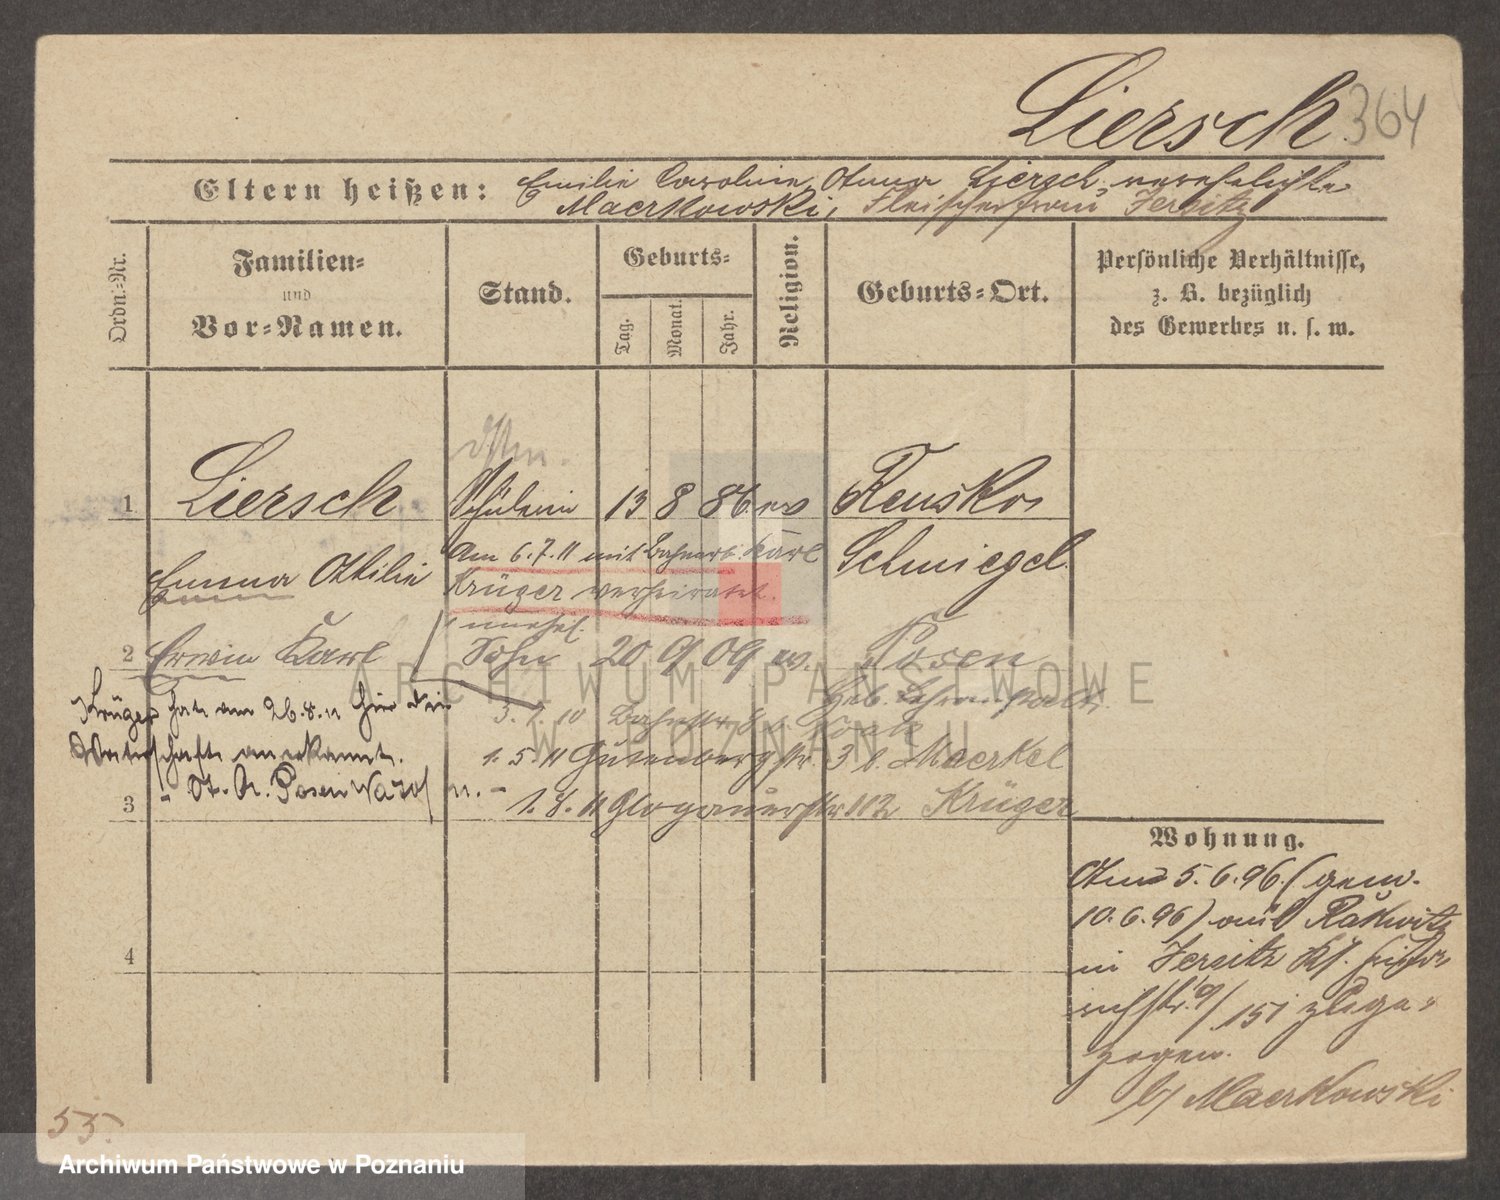 Liersch 364
Eltern heißen: Emilie Caroline Anna Liersch, verehelichte
Maerkowski, Fleischerfrau Jersitz
Ordn.-Nr.
Familien-
und
Vor-Namen.
Stand.
Geburts-
Tag.
Monat.
Jahr.
Religion.
Geburts-Ort.
Persönliche Verhältnisse,
z. B. bezüglich
des Gewerbes u. s. w.
1 Liersch Schülerin 13 8 86 ev Reusko,
Emma Ottilie Schmiegel
Am 6.7.11 mit Bahnarb. Karl
Krüger verheiratet.
unehel.
2 Erwin Karl Sohn 20 9 09 ev. Posen
Krüger hat am 26.8.11 hier die
Vaterschaft anerkannt.
- St. A. Posen
3.1.10
1.5.11 Gutenbergstr. 3 b. Maerkel
3 1.8.11 Glogauerstr 112 Krüger
4
Wohnung.
Am 5.6.96 (gem.
10.6.96) aus Rakwitz
in Jersitz
9/151 zuge-
zogen.
b/ Maerkowski
55.
ARCHIWUM PAŃSTWOWE
W POZNANIU
Archiwum Państwowe w Poznaniu